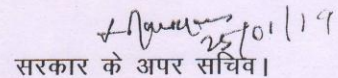 25/01/19
सरकार के अपर सचिव।